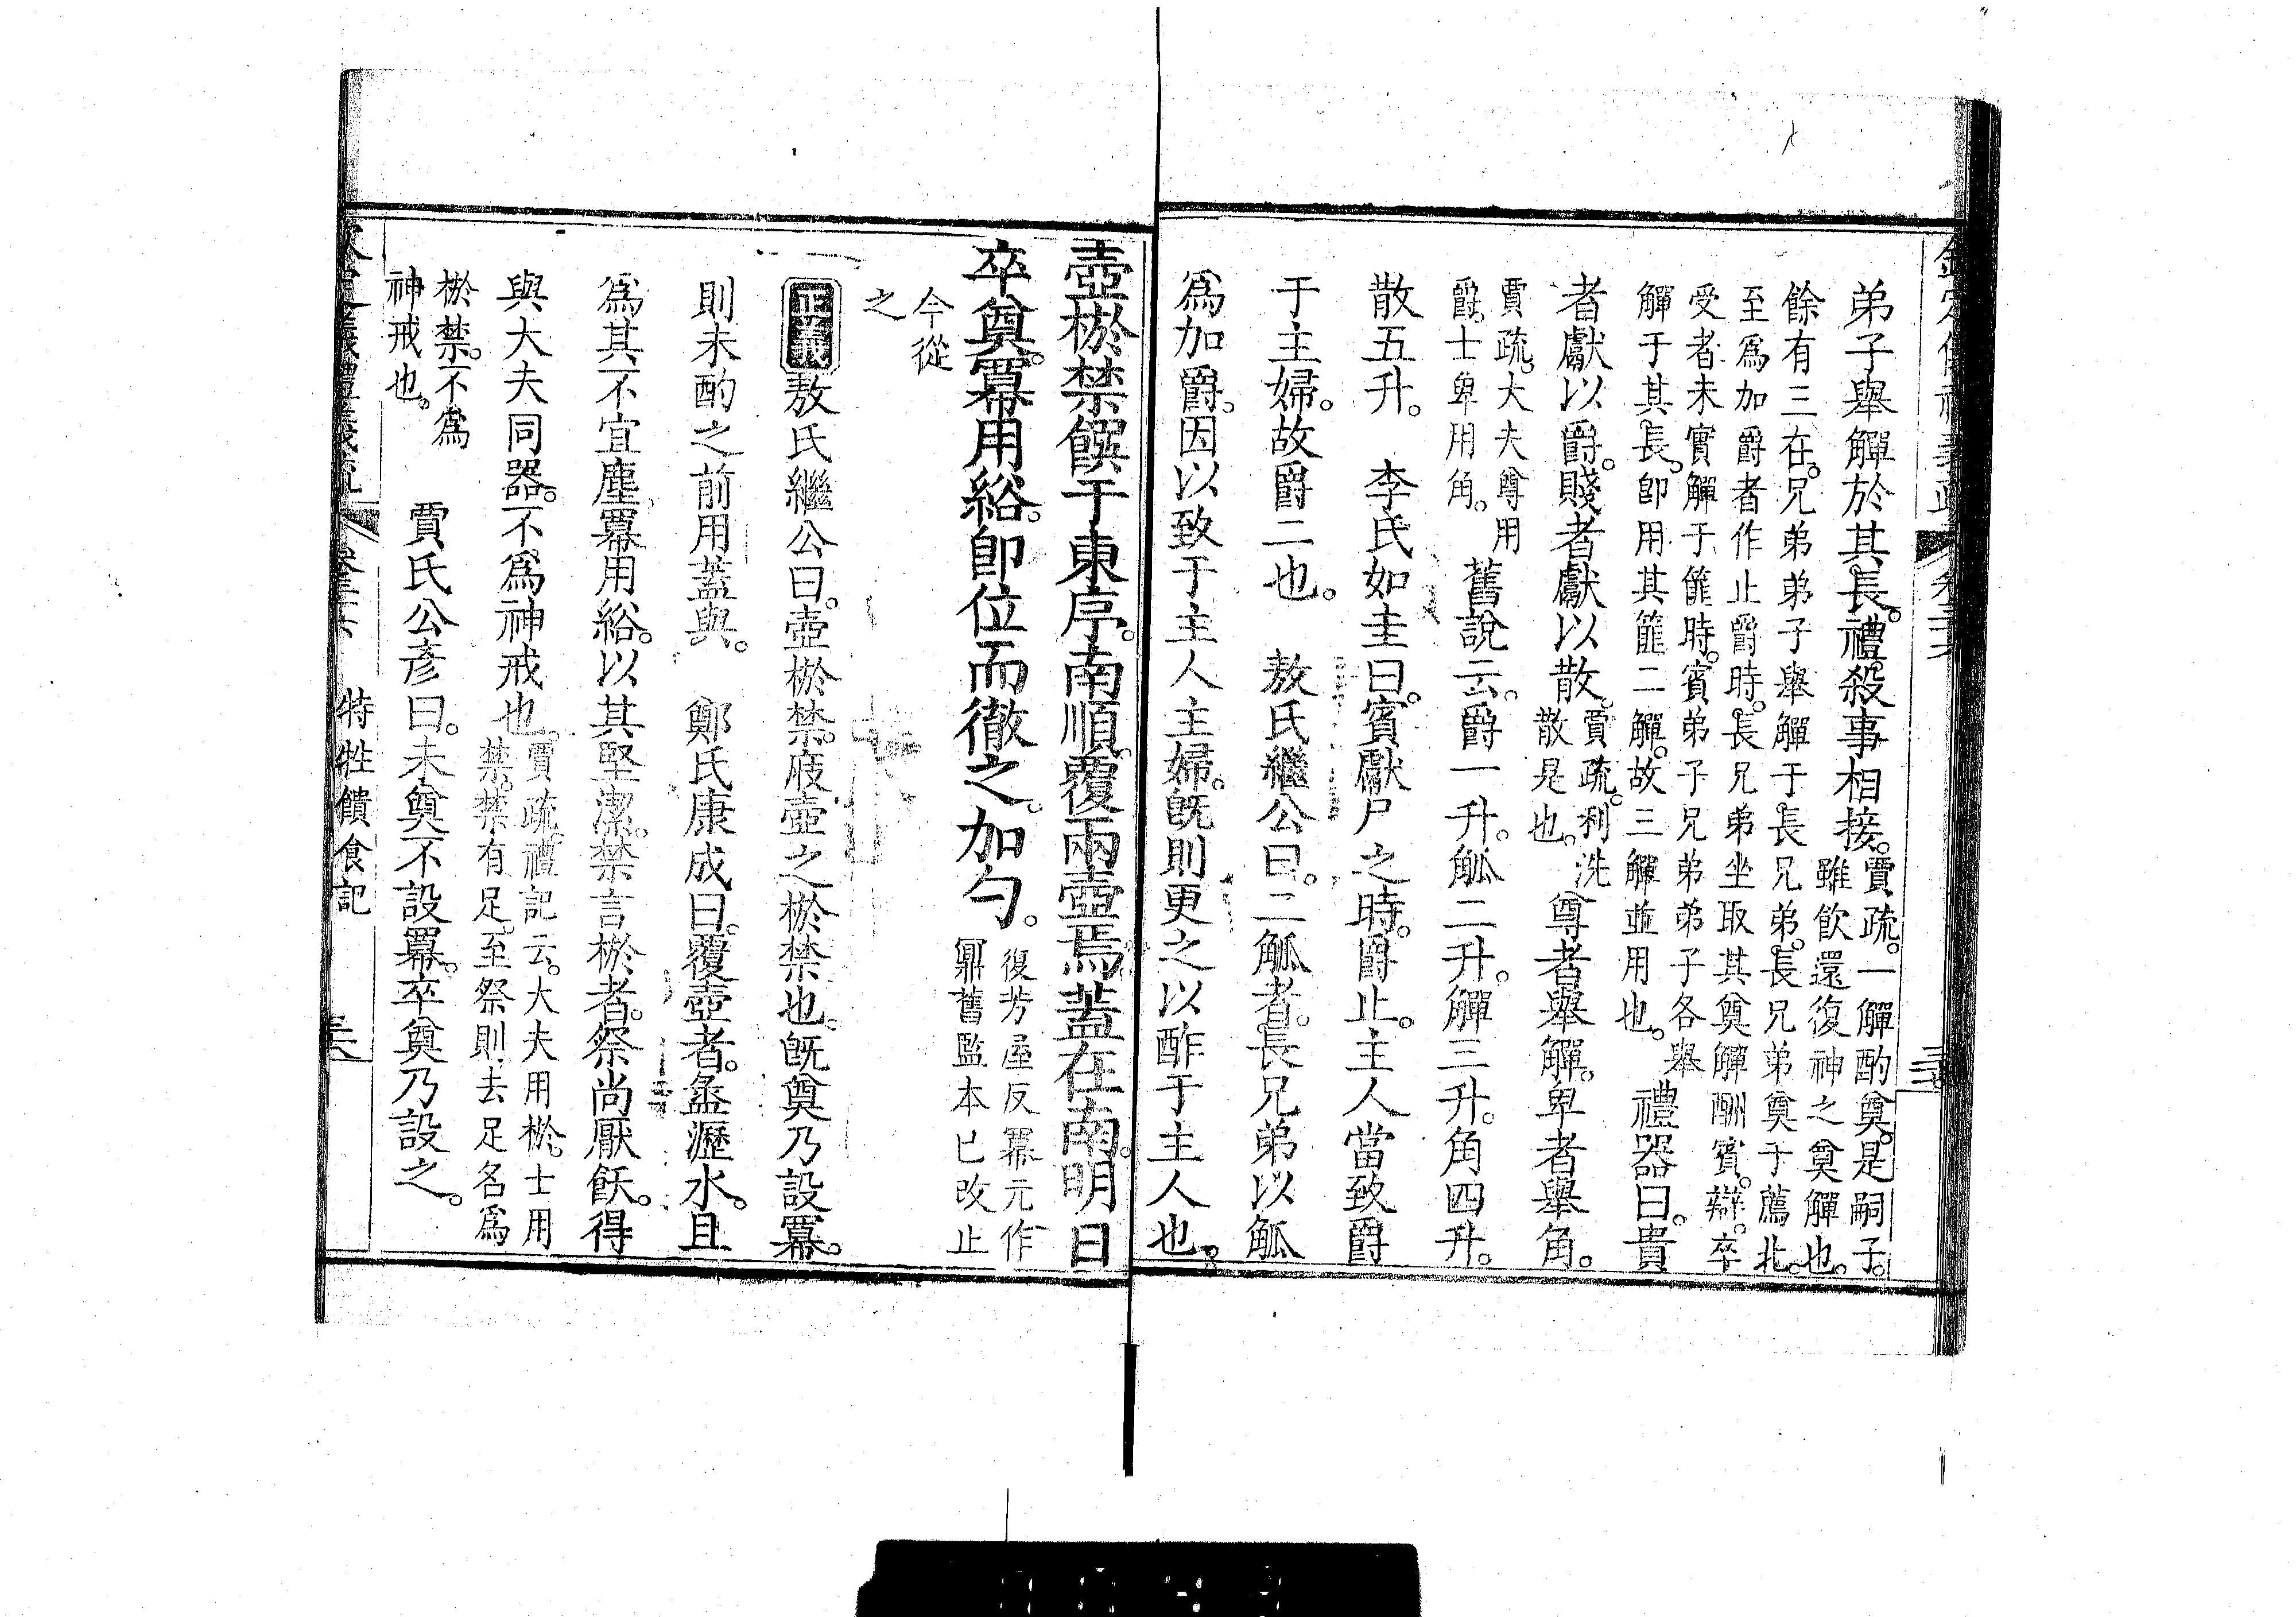 弟子舉觶於其長。禮殺事相接。賈疏。一觶酌奠。是嗣子。
雖飲還復神之奠觶也。
餘有三在。兄弟弟子舉觶于長兄弟。長兄弟奠于薦北。
至爲加爵者作止爵時。長兄弟坐取其奠觶酬賓。辯。卒
受者未實觶于篚時。賓弟子兄弟弟子各舉
觶于其長。卽用其篚二觶。故三觶並用也。
禮器曰。貴
者獻以爵。賤者獻以散。賈疏。利洗
散是也。
尊者舉觶。卑者舉角。
賈疏。大夫尊用
爵。士卑用角。
舊說云。爵一升。觚二升。觶三升。角四升。
散五升。 李氏如圭曰。賓獻尸之時。爵止。主人當致爵
于主婦。故爵二也。 敖氏繼公曰。二觚者。長兄弟以觚
爲加爵。因以致于主人主婦。既則更之以酢于主人也。
壺棜禁饌于東序。南順。覆兩壺焉。蓋在南。明日
卒奠。冪用綌。卽位而徹之。加勺。
復芳屋反冪元作
鼏舊監本已改止
今從
之
正義敖氏繼公曰。壺棜禁。庪壺之棜禁也。既奠乃設冪。
則未酌之前用蓋與。 鄭氏康成曰。覆壺者。盝瀝水。且
爲其不宜塵。冪用綌。以其堅潔。禁言棜者。祭尚厭飫。得
與大夫同器。不爲神戒也。賈疏。禮記云。大夫用棜。士用
禁。禁有足。至祭則去足名爲
棜禁。不爲
神戒也。
賈氏公彥曰。未奠不設冪。卒奠乃設之。
特牲饋食記